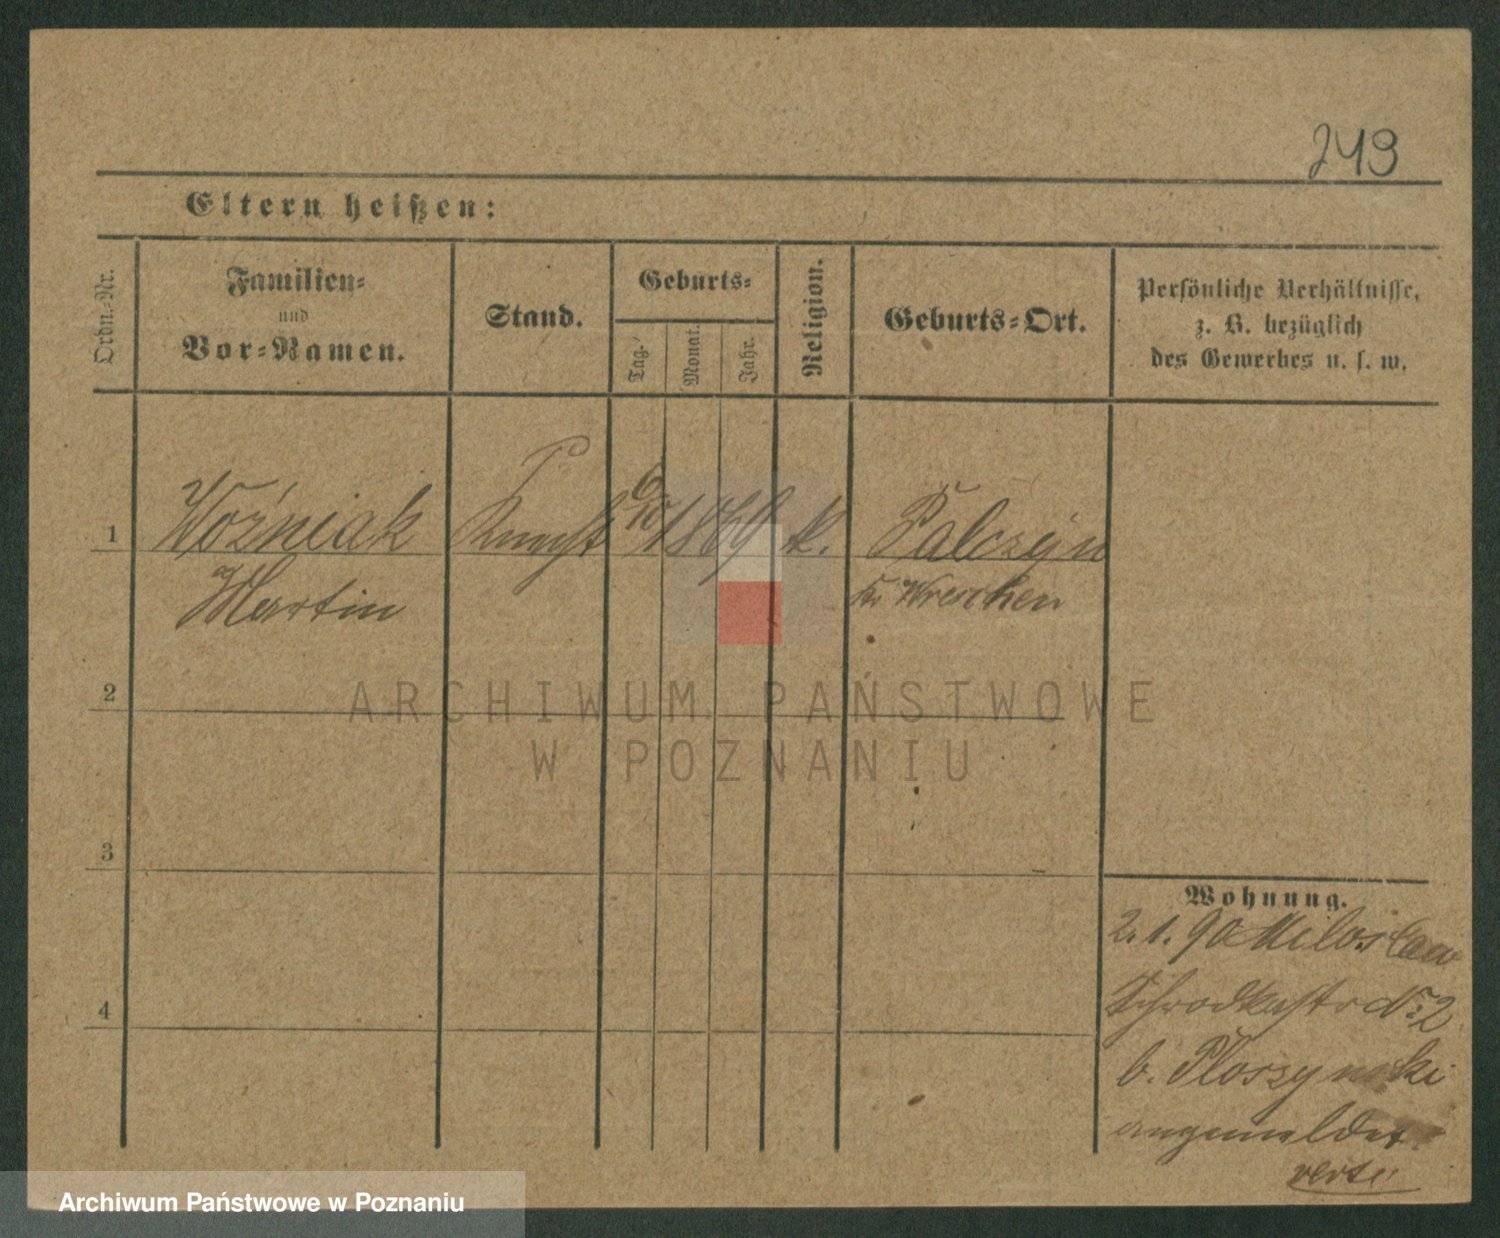 243
Eltern heißen:
Ordn.-Nr.
Familien-
und
Vor-Namen.
Stand.
Geburts-
Tag.
Monat.
Jahr.
Religion.
Geburts-Ort.
Persönliche Verhältnisse,
z. B. bezüglich
des Gewerbes u. s. w.
1 Woźniak 6/10 1869 k. Palczyn
Martin Kr Wreschen
2
ARCHIWUM PAŃSTWOWE
W POZNANIU
3
Wohnung.
2. 1. 90 Miloslaw
Schrodkastr No 2
b. Ploszynski
angemeldet
4
verte
Archiwum Państwowe w Poznaniu